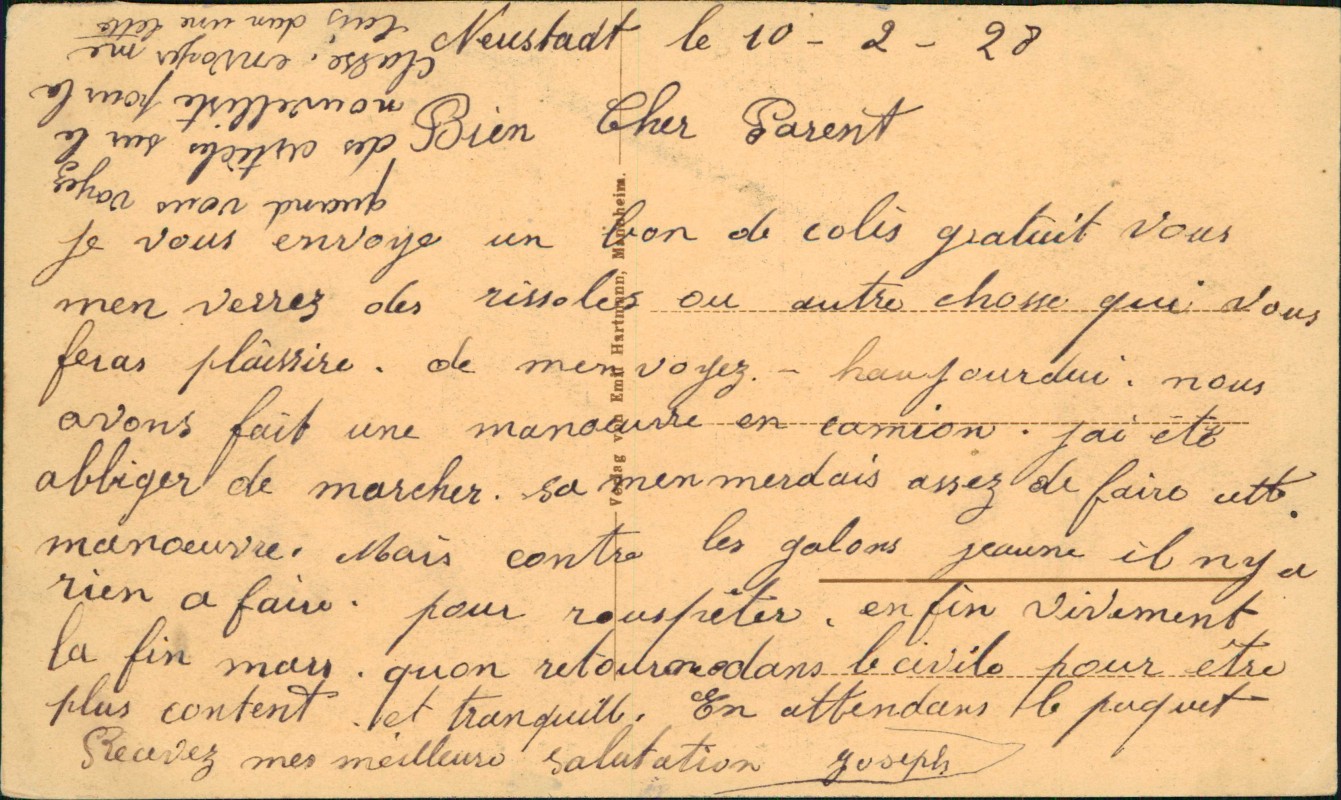 Neustadt le 10 - 2 - 28
Bien Cher Parent
je vous envoye un bon de colis gratuit vous
men verrez des rissoles ou autre chosse qui vous
feras plaissire. de men voyez. - haujourdui. nous
avons fait une manoeurre en camion. jai eté
abbiger de marcher. sa men merdais assez de faire cett.
manoeuvre. Mais contre les galons jeaune il ny a
rien a faire. pour rouspéter. enfin vivement
la fin mars. quon retourne dans le civile pour être
plus content. et tranquill. En attendans le paquet
Recevez mes meilleure salutation Joseph
quand vous voyez
des articles sur le
nouvelliste pour la
classe. envoyer me
lais dan une lettre
Verlag von Emil Hartmann, Mannheim.